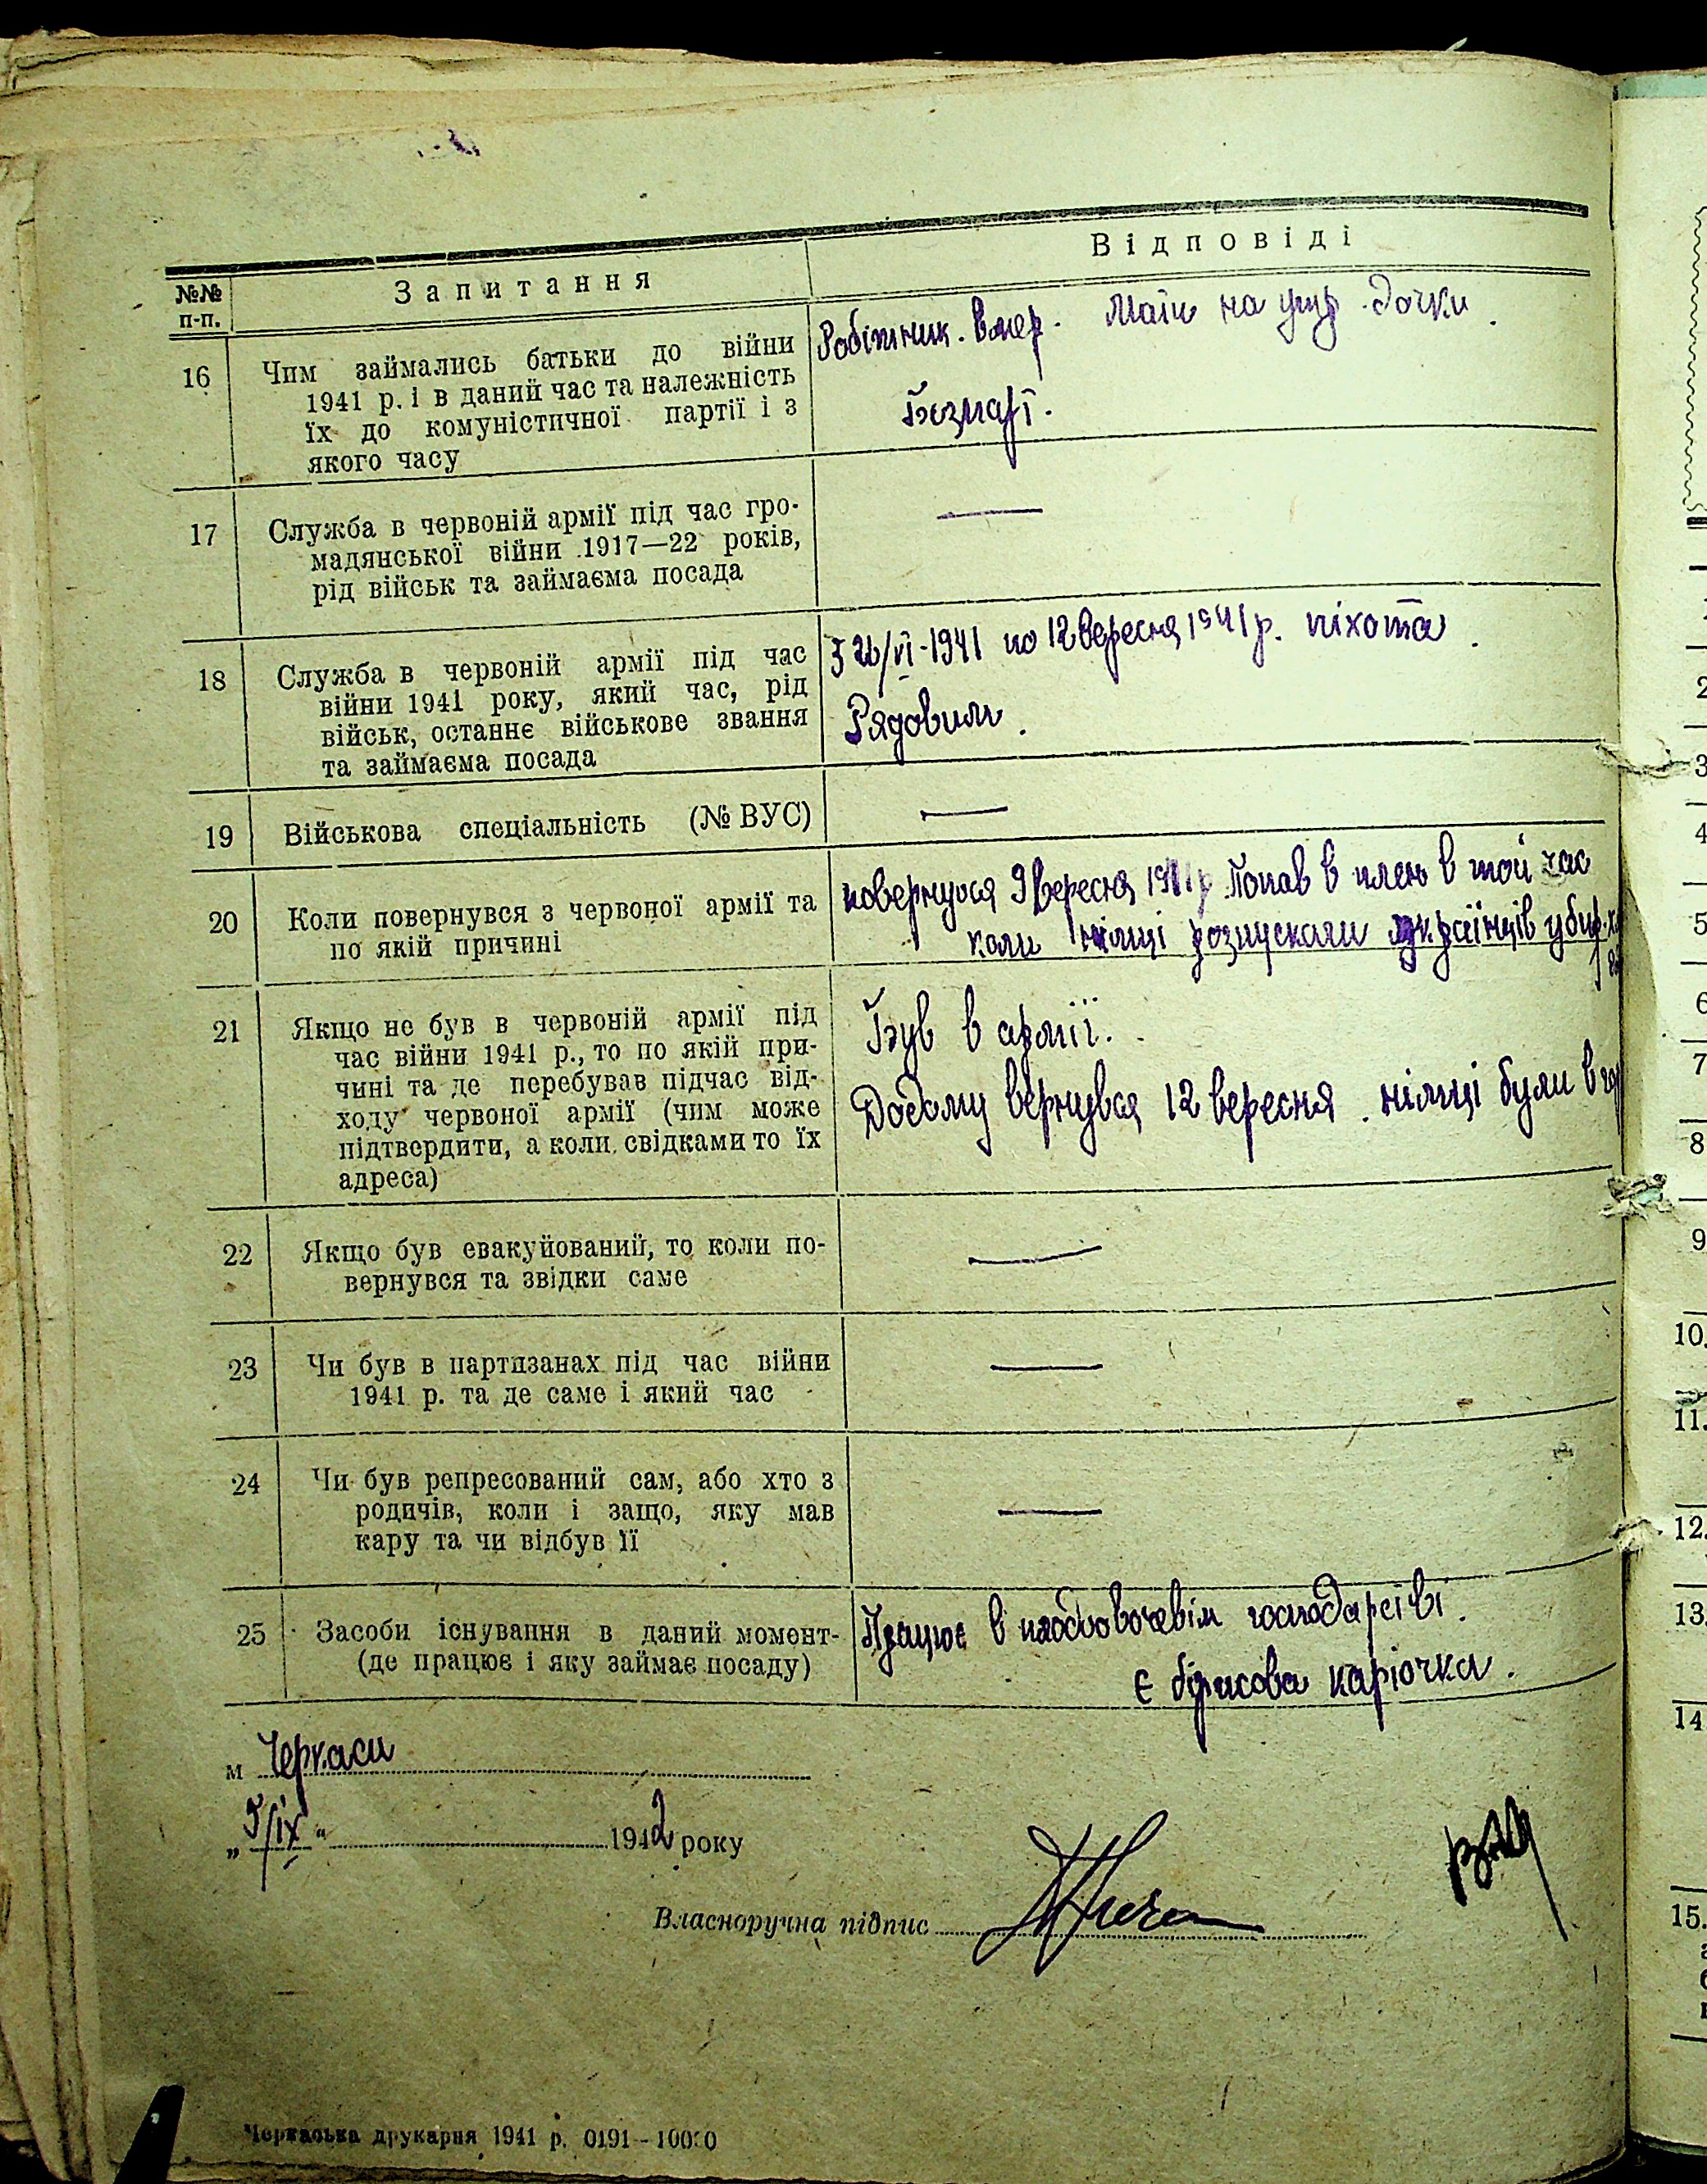 №№ п-п.
Запитання
Відповіді
16
Чим займались батьки до війни
1941 р. і в даний час та належність
їх до комуністичної партії і з
якого часу
Робітник. Вмер. Мати на утр. дочки.
Безпарт.
17
Служба в червоній армії під час гро-
мадянської війни 1917—22 років,
рід військ та займаєма посада
—
18
Служба в червоній армії під час
війни 1941 року, який час, рід
військ, останнє військове звання
та займаєма посада
З 26/VI-1941 по 12 вересня 1941 р. піхота.
Рядовим.
19
Військова спеціальність (№ ВУС)
—
20
Коли повернувся з червоної армії та
по якій причині
повернувся 9 вересня 1941 р. Попав в плен в той час
коли німці розпускали українців
21
Якщо не був в червоній армії під
час війни 1941 р., то по якій при-
чині та де перебував підчас від-
ходу червоної армії (чим може
підтвердити, а коли свідками то їх
адреса)
Був в армії.
Додому вернувся 12 вересня. німці були в
22
Якщо був евакуйований, то коли по-
вернувся та звідки саме
—
23
Чи був в партизанах під час війни
1941 р. та де саме і який час
—
24
Чи був репресований сам, або хто з
родичів, коли і защо, яку мав
кару та чи відбув її
—
25
Засоби існування в даний момент-
(де працює і яку займає посаду)
Працює в плодовочевім господарстві.
Є біржова карточка.
м Черкаси
„5/IX“ 1942 року
Власноручна підпис
Черкаська друкарня 1941 р. 0191—10000
3
4
5
6
7
8
9
10.
11.
12.
13.
14
15.